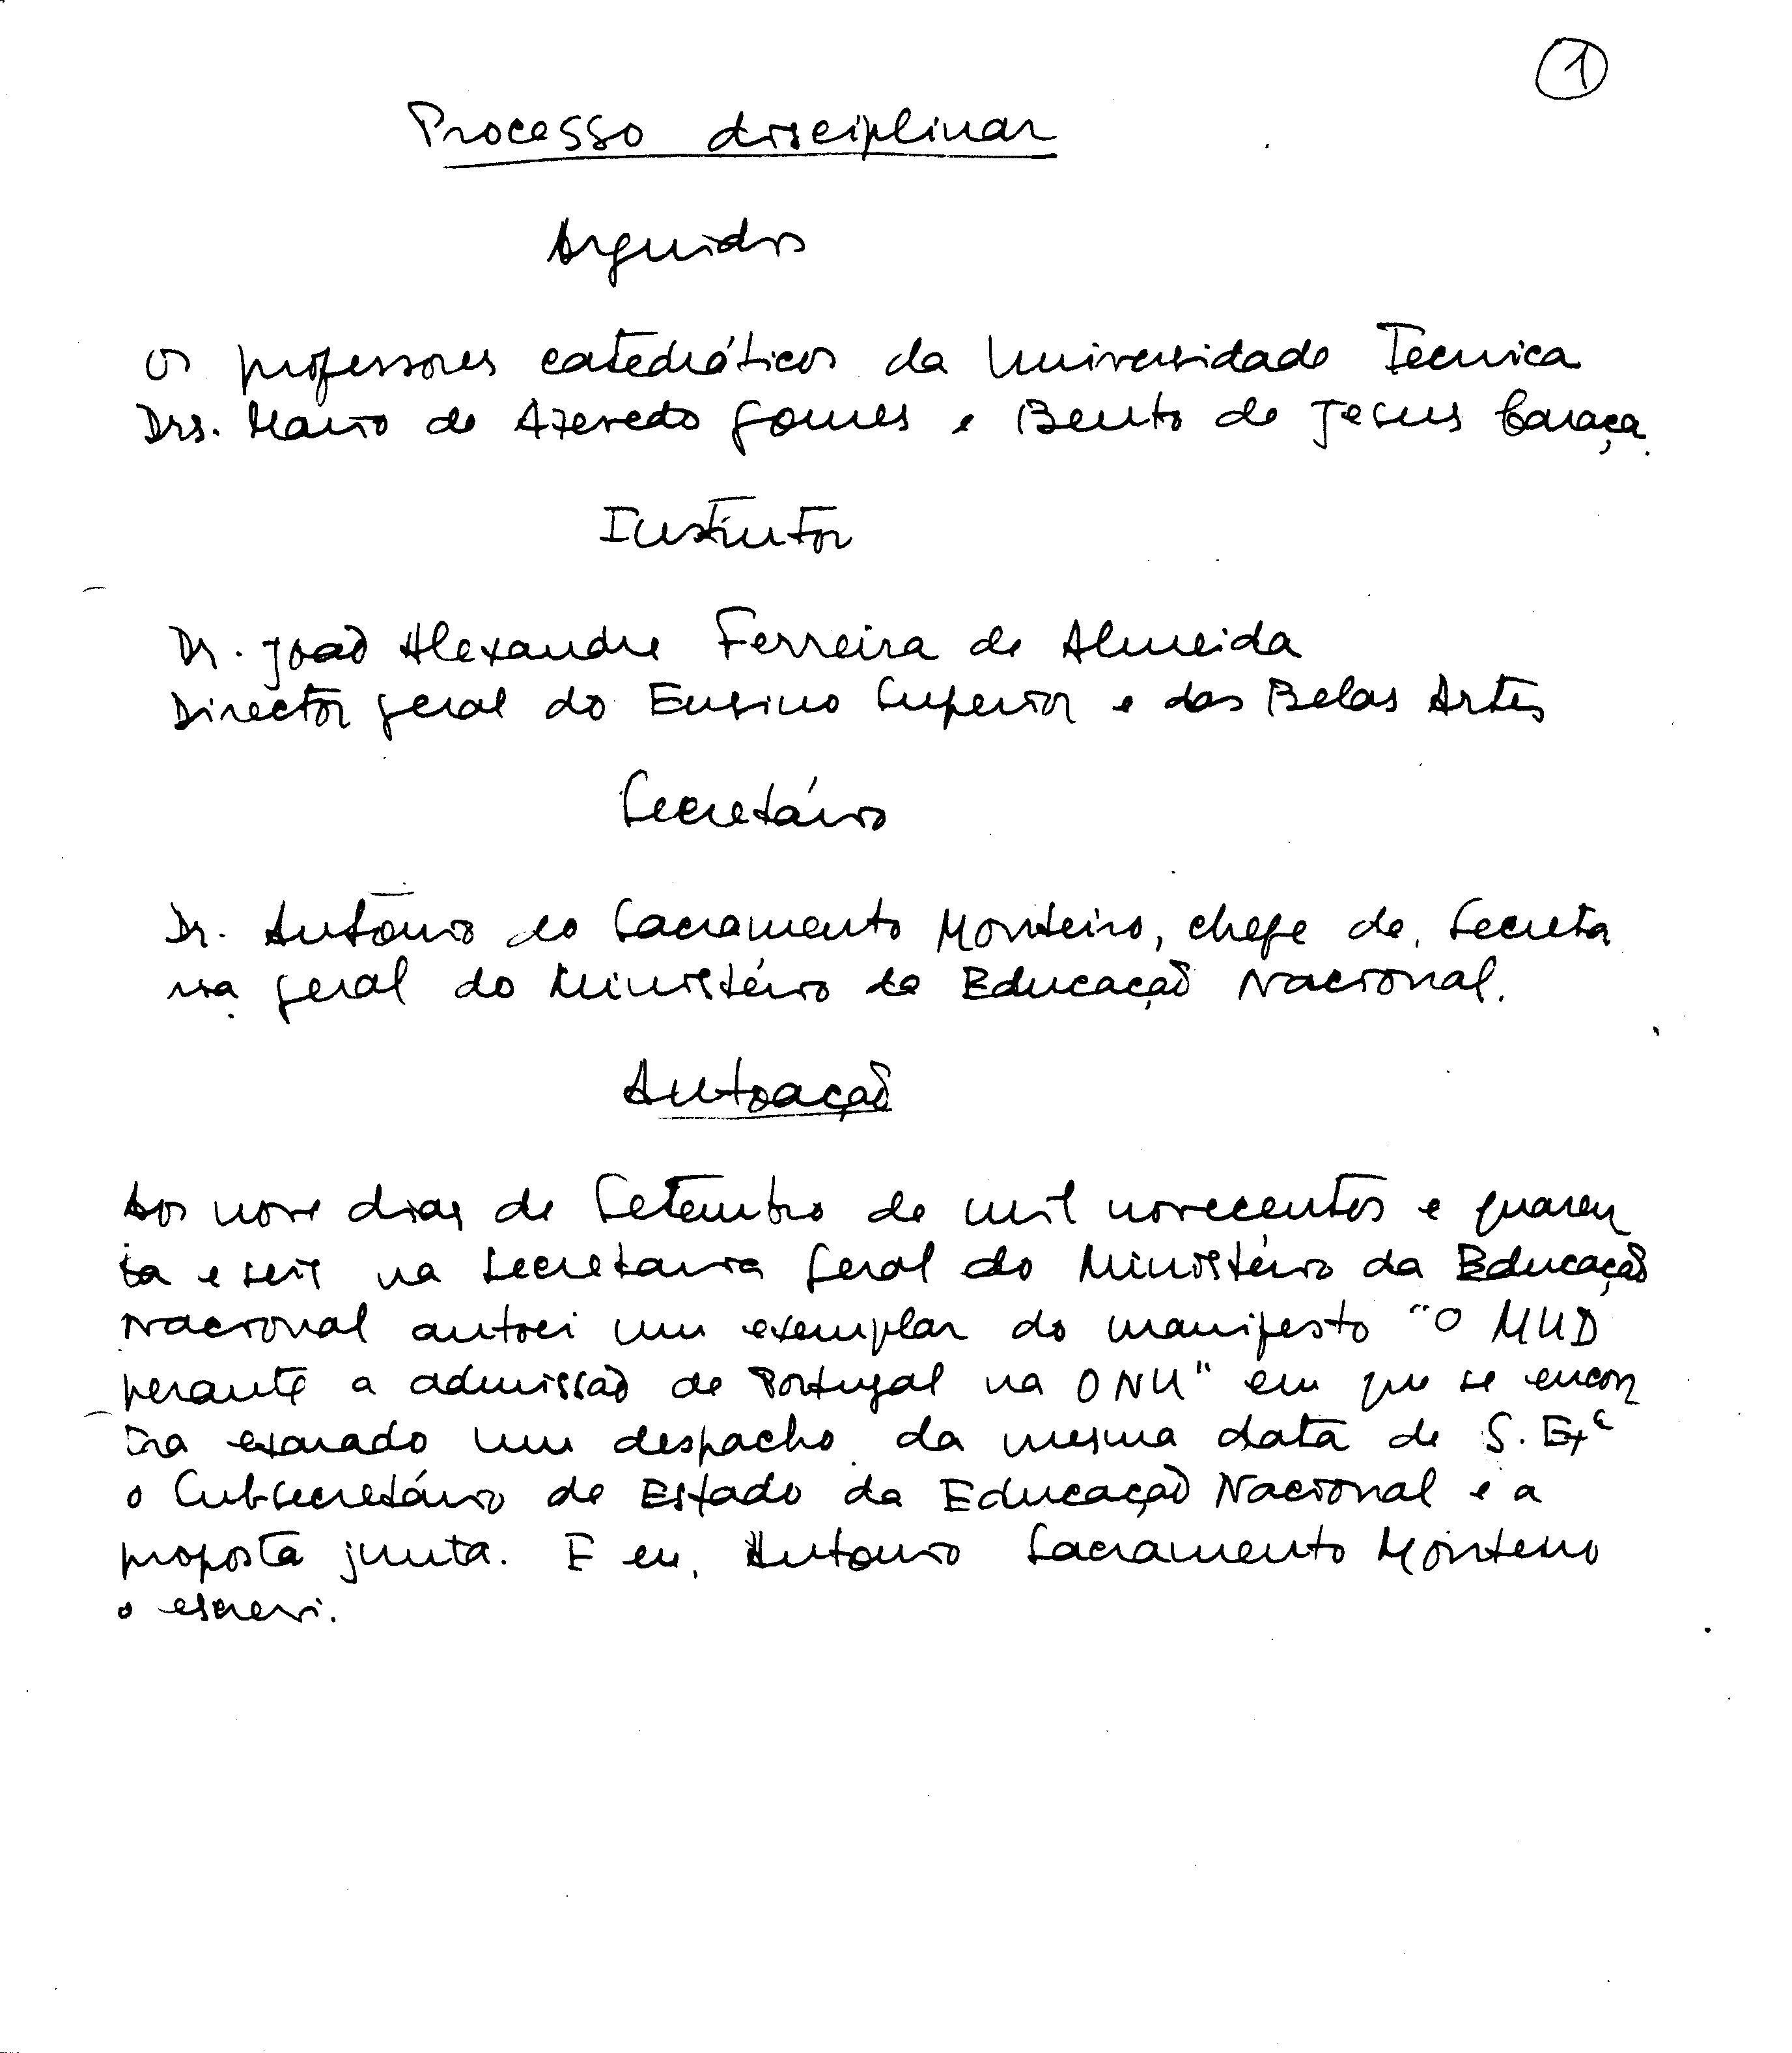 1
Processo disciplinar
Arguidos
Os professores catedráticos da Universidade Técnica
Drs. Mario de Azevedo Gomes e Bento de Jesus Caraça.
Instrutor
Dr. João Alexandre Ferreira de Almeida
Director geral do Ensino Superior e das Belas Artes
Secretário
Dr. António do Sacramento Monteiro, chefe da Secreta
ria geral do Ministério da Educação Nacional.
Autoação
Aos nove dias de Setembro de mil novecentos e quaren
ta e seis na Secretaria Geral do Ministério da Educação
Nacional autoei um exemplar do manifesto "O MUD
perante a admissão de Portugal na ONU" em que se encon
tra exarado um despacho da mesma data de S. Exª
o Subsecretário de Estado da Educação Nacional e a
proposta junta. E eu, Antonio Sacramento Monteiro
o escrevi.